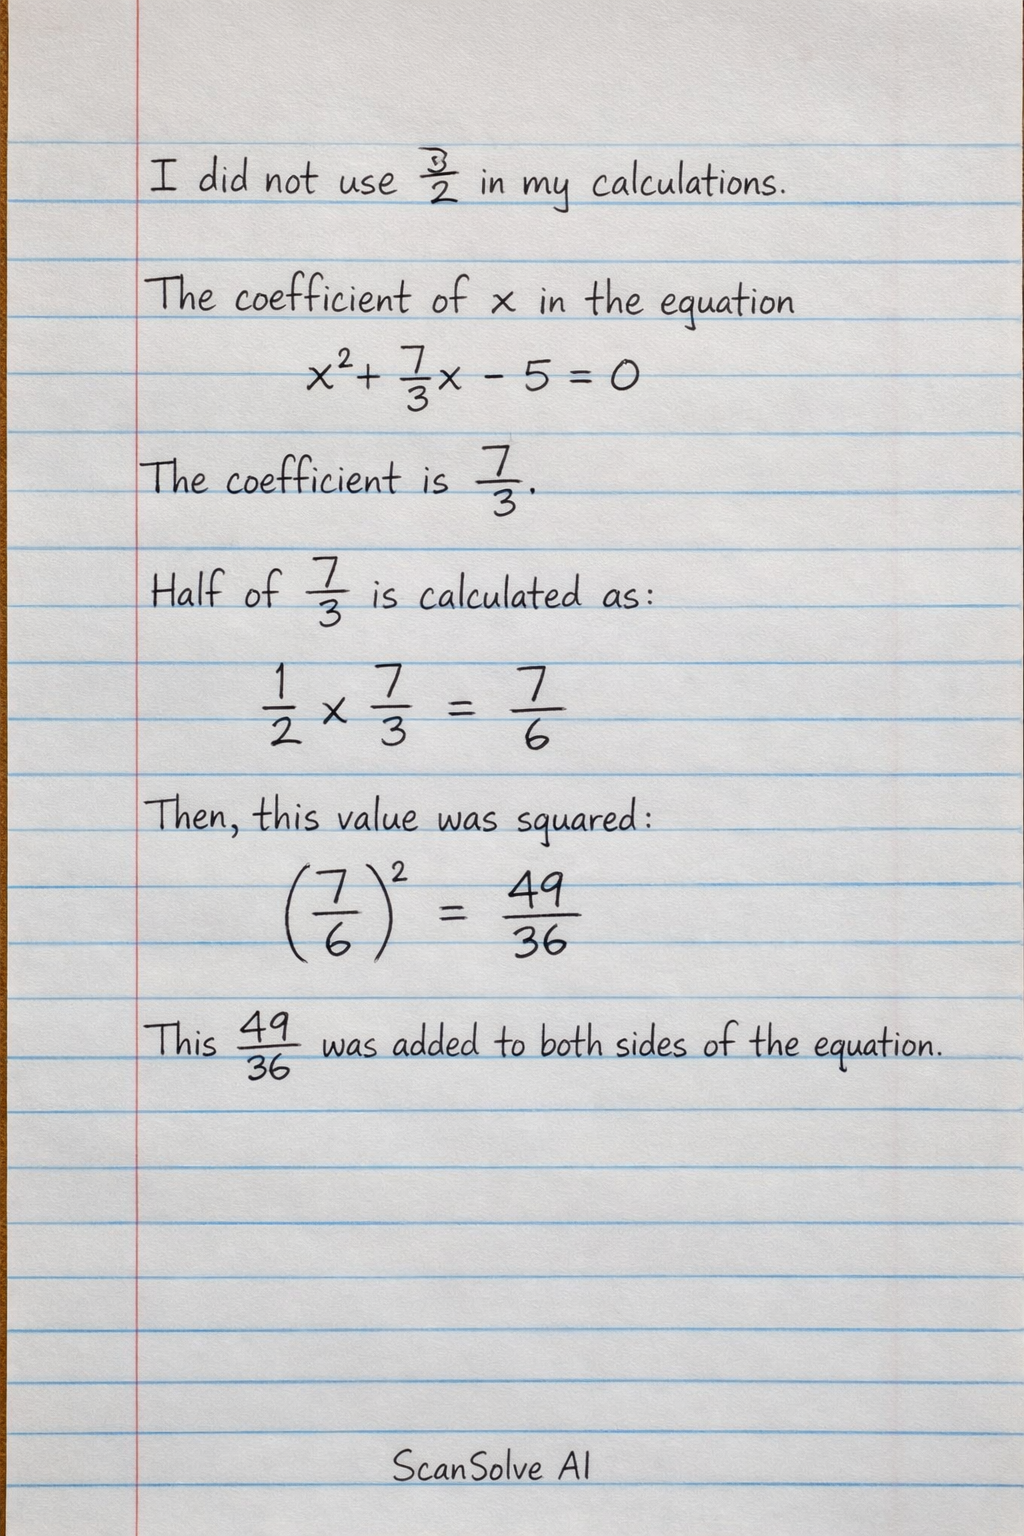 I did not use 3/2 in my calculations.
The coefficient of x in the equation
x² + 7/3 x - 5 = 0
The coefficient is 7/3.
Half of 7/3 is calculated as:
1/2 × 7/3 = 7/6
Then, this value was squared:
(7/6)² = 49/36
This 49/36 was added to both sides of the equation.
ScanSolve AI